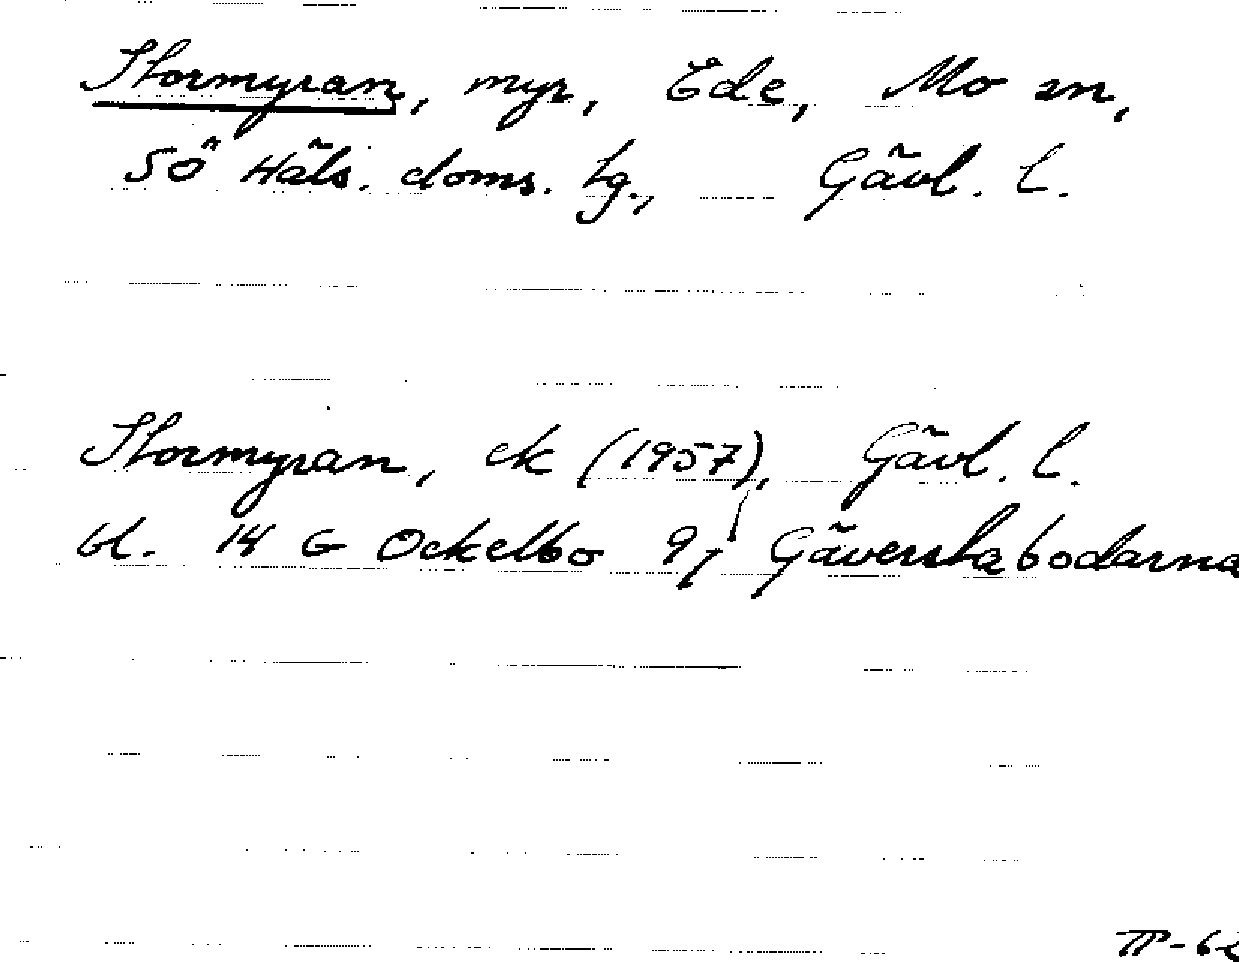 Stormyran, myr, Ede, Mo sn,
Sö Häls. doms. lg., Gävl. l.
Stormyran, ek (1957), Gävl. l.
bl. 14 G Ockelbo 9j Gäverskabodarna